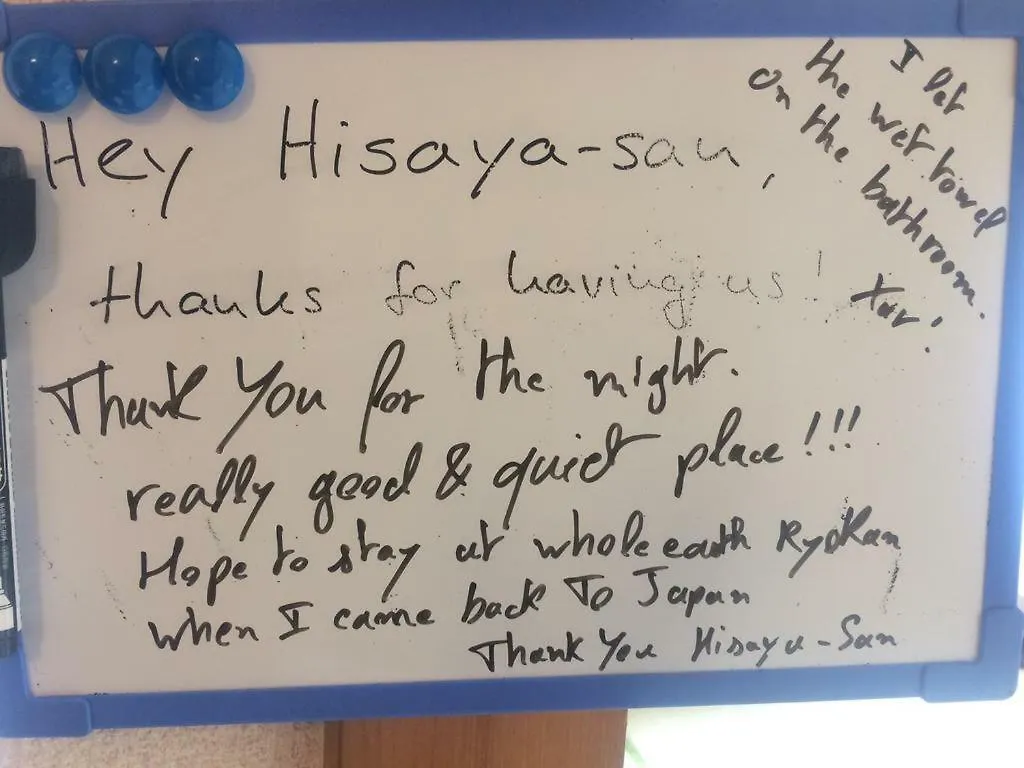 Hey Hisaya-san,
thanks for having us!
Thank You for the night.
really good & quiet place!!!
Hope to stay at whole earth Ryokan
when I came back To Japan
Thank You Hisaya-San
I let
the wet towel
on the bathroom.